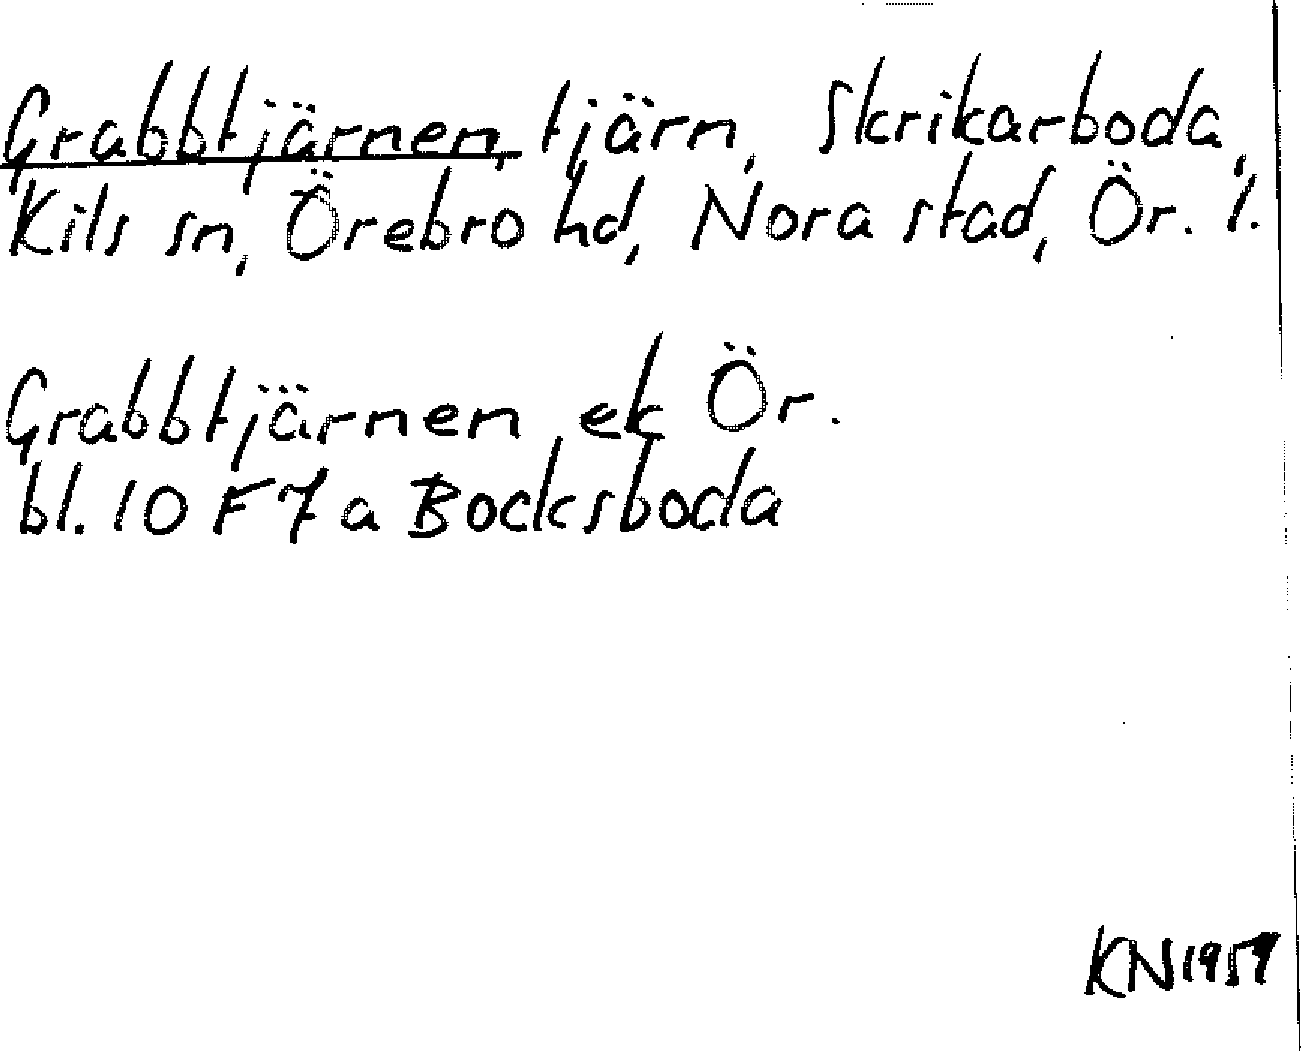 Grabbtjärnen, tjärn, Skrikarboda,
Kils sn, Örebro hd, Nora stad, Ör. l.
Grabbtjärnen ek Ör.
bl. 10 F 7 a Bocksboda
KN 1959